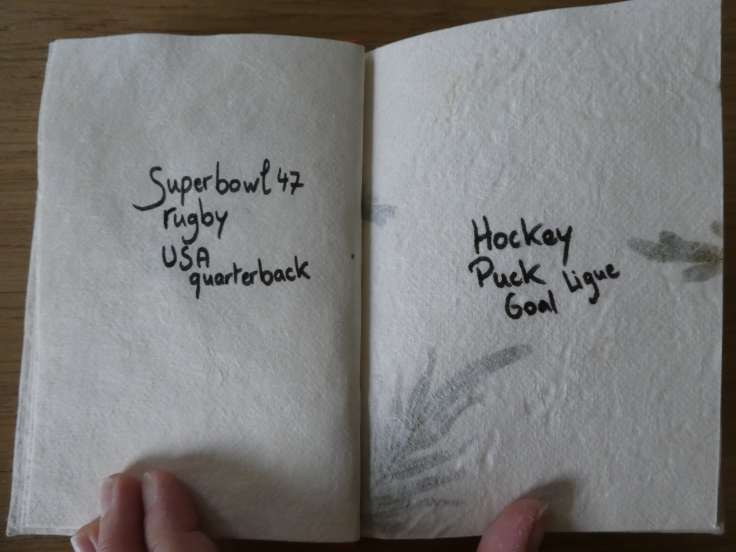 Superbowl 47
rugby
USA
quarterback
Hockey
Puck Ligue
Goal